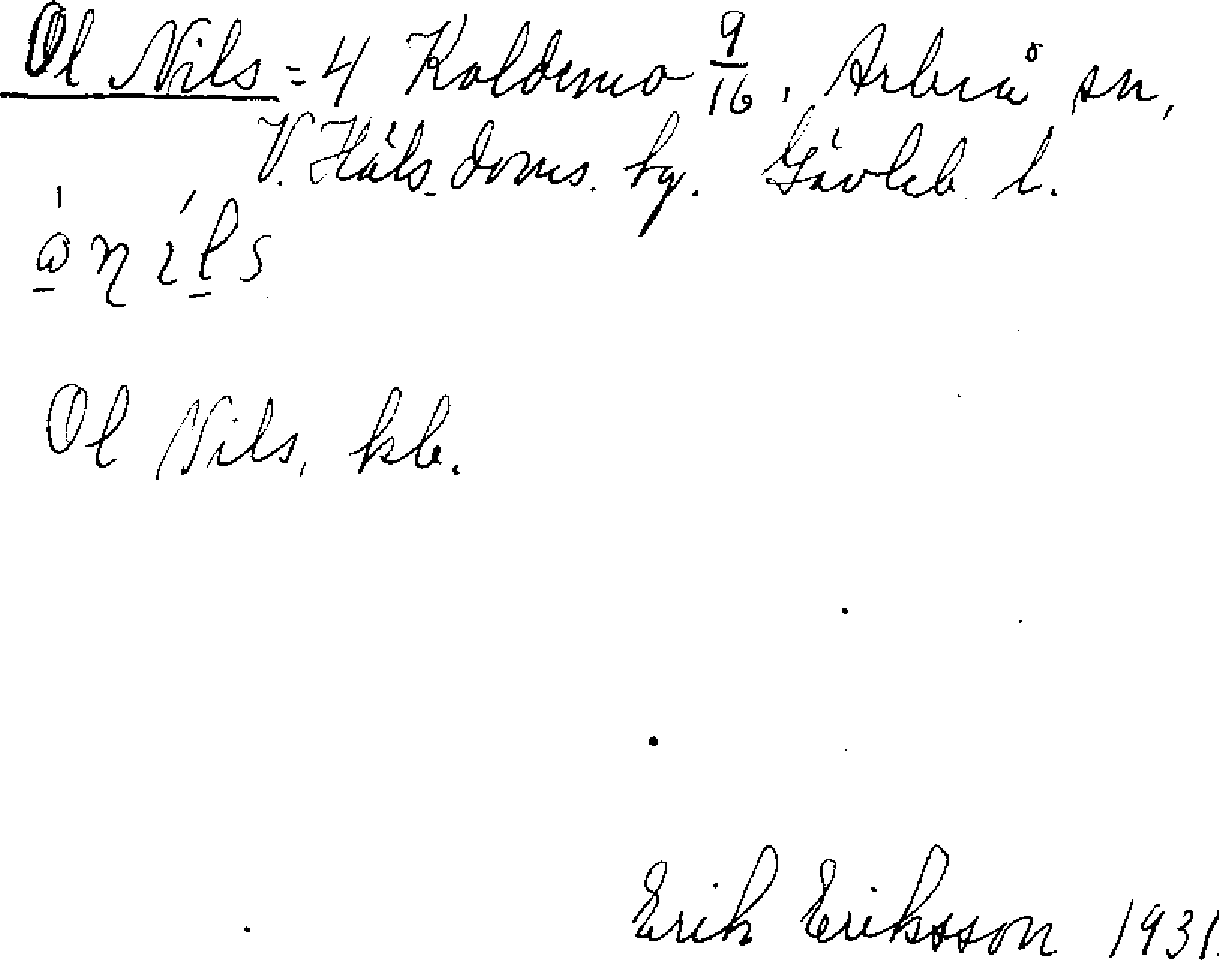 Ol Nils = 4 Koldemo 9/16, Arbrå sn,
V. Häls. doms. hg. Gävleb. l.
Ol Nils, kb.
Erik Eriksson 1931